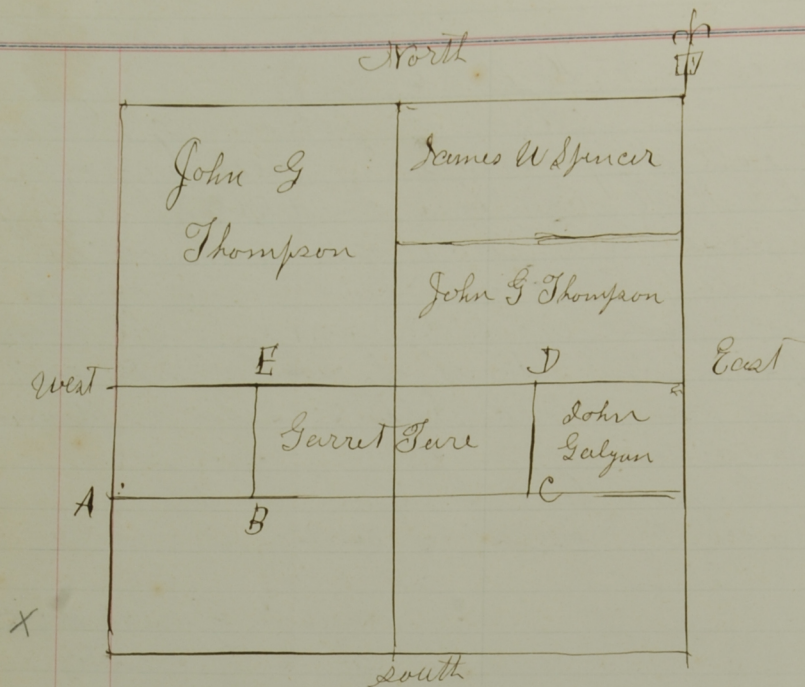 North
John G
Thompson
James W Spencer
John G Thompson
West
E
D
East
Garret Ture
John
Galyan
A
B
C
X
South